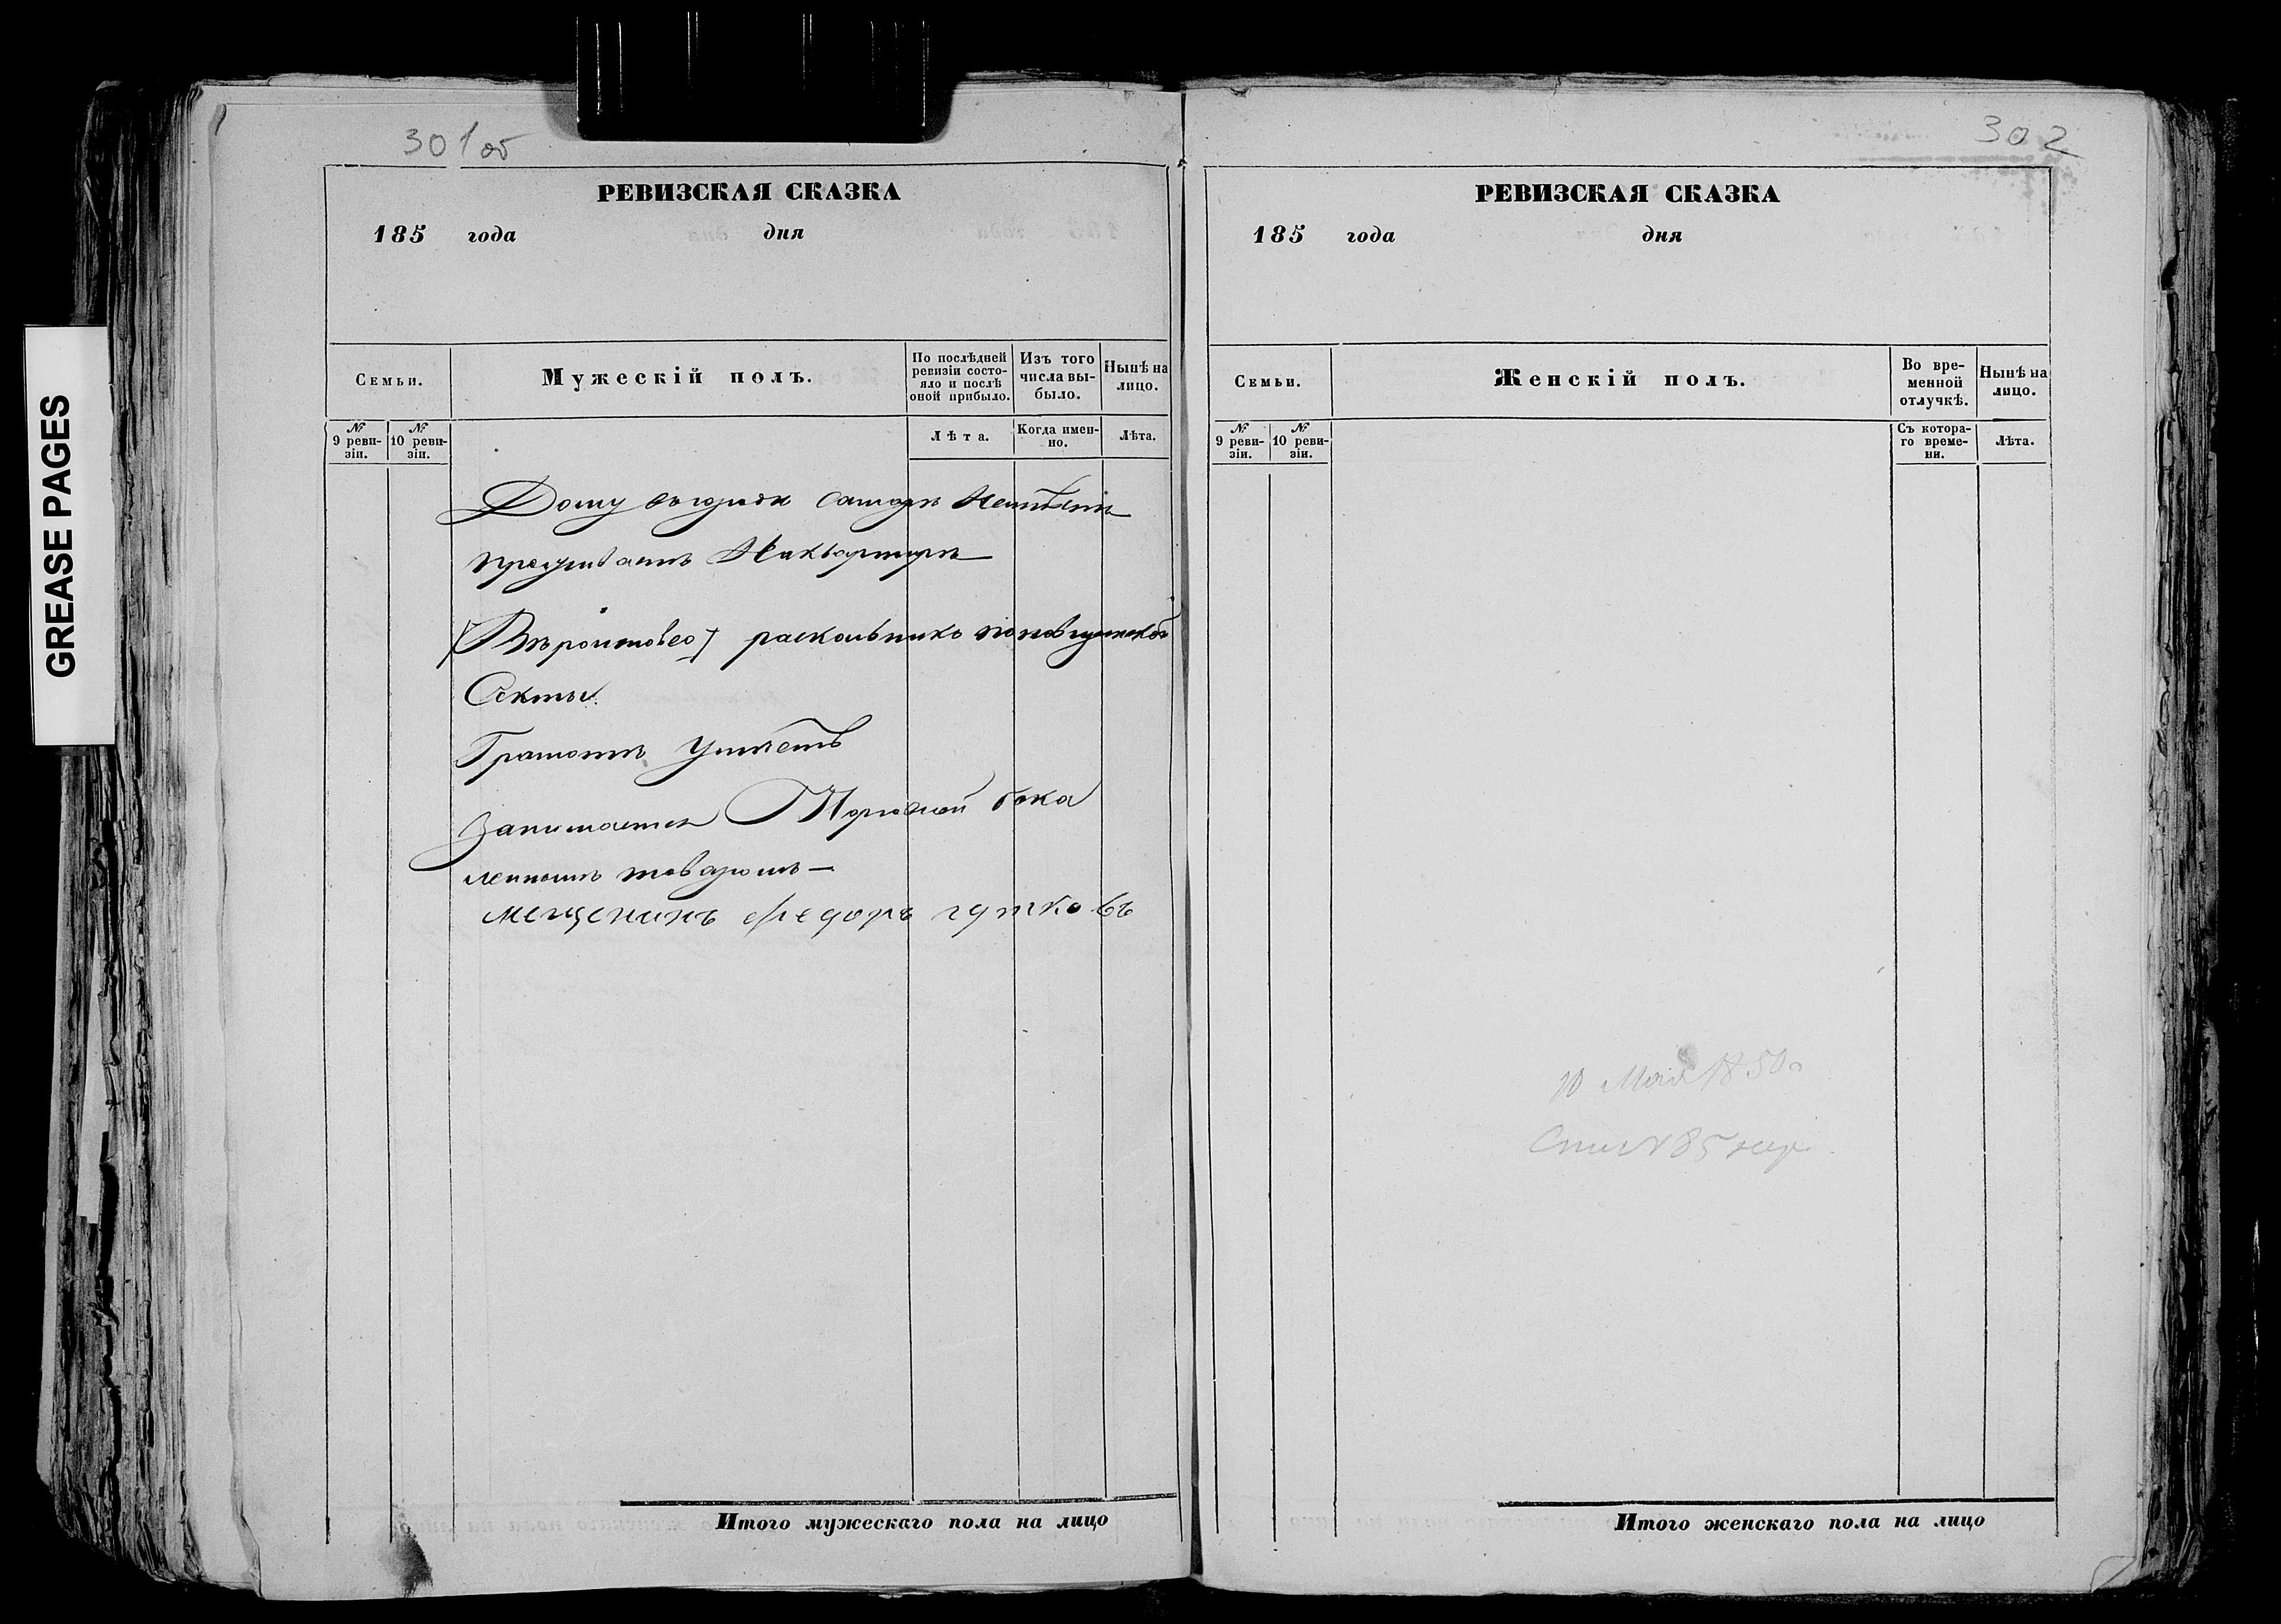 GREASE PAGES
301об
РЕВИЗСКАЯ СКАЗКА
185 года дня
Семьи.
Мужескій полъ.
По послѣдней ревизіи состояло и послѣ оной прибыло.
Изъ того числа выбыло.
Нынѣ на лицо.
№ 9 ревизіи.
№ 10 ревизіи.
Лѣта.
Когда именно.
Лѣта.
Дому въ городѣ Самарѣ Неимѣетъ
проживаетъ Наквартирѣ
Вѣроисповед раскольникъ поповщинской
Секты.
Грамотѣ Умѣетъ
Занимается Торговлей бока
лейнымъ товаромъ —
мещенинъ федоръ гутковъ
Итого мужескаго пола на лицо
302
РЕВИЗСКАЯ СКАЗКА
185 года дня
Семьи.
Женскій полъ.
Во временной отлучкѣ.
Нынѣ на лицо.
№ 9 ревизіи.
№ 10 ревизіи.
Съ котораго времени.
Лѣта.
10 Мая 1850
Итого женскаго пола на лицо